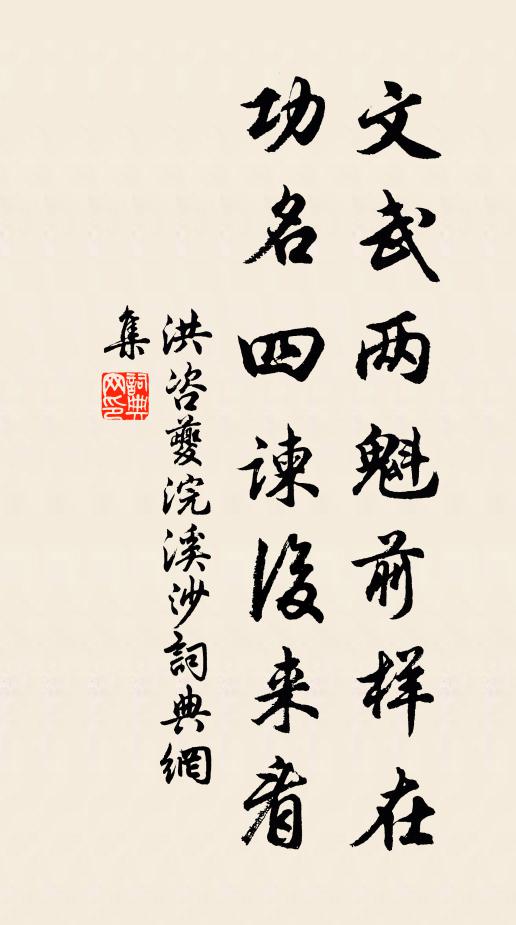 文武两魁前样在
功名四谏後来看
洪咨夔浣溪沙詞典網
集
詞典网印